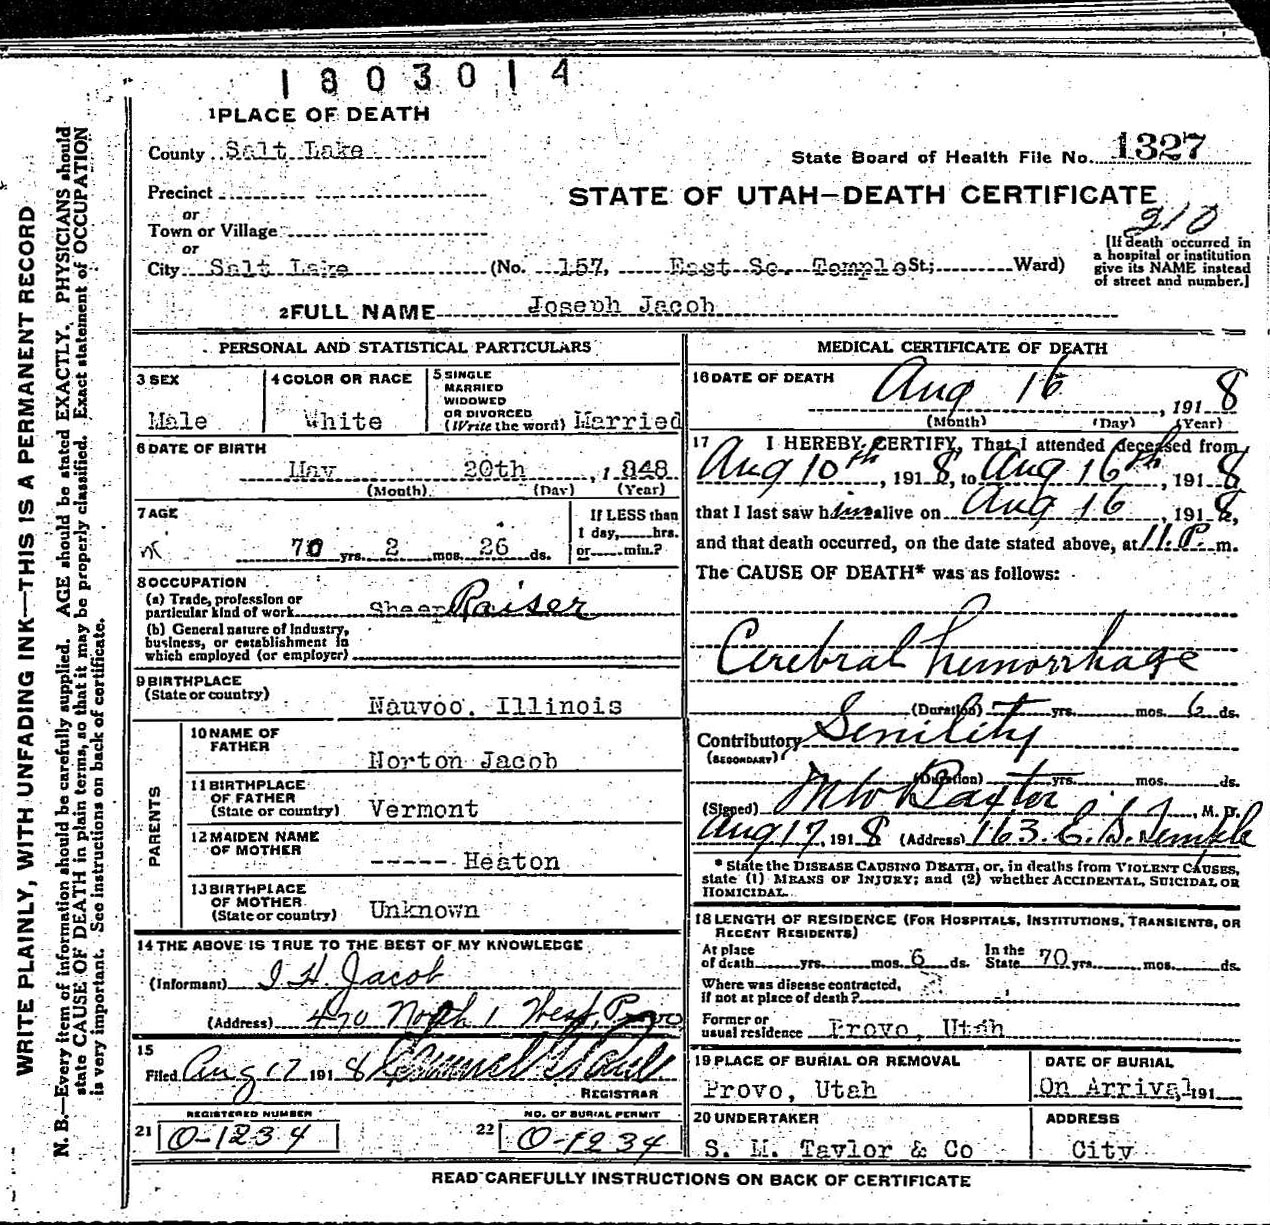 1803014
1 PLACE OF DEATH
County Salt Lake
State Board of Health File No. 1327
Precinct
or
STATE OF UTAH—DEATH CERTIFICATE
210
Town or Village
or
City Salt Lake (No. 157, East So. Temple St; Ward)
[If death occurred in
a hospital or institution
give its NAME instead
of street and number.]
2 FULL NAME Joseph Jacob
PERSONAL AND STATISTICAL PARTICULARS
3 SEX
Male
4 COLOR OR RACE
White
5 SINGLE
MARRIED
WIDOWED
OR DIVORCED
(Write the word) Married
6 DATE OF BIRTH
May 20th, 1848
(Month) (Day) (Year)
7 AGE
70 yrs. 2 mos. 26 ds.
If LESS than
1 day, hrs.
or min.?
8 OCCUPATION
(a) Trade, profession or
particular kind of work Sheep Raiser
(b) General nature of industry,
business, or establishment in
which employed (or employer)
9 BIRTHPLACE
(State or country)
Nauvoo, Illinois
PARENTS
10 NAME OF
FATHER
Norton Jacob
11 BIRTHPLACE
OF FATHER
(State or country) Vermont
12 MAIDEN NAME
OF MOTHER
----- Heaton
13 BIRTHPLACE
OF MOTHER
(State or country) Unknown
14 THE ABOVE IS TRUE TO THE BEST OF MY KNOWLEDGE
(Informant) I H Jacob
(Address) 470 North 1 West, Provo
15
Filed Aug 17 1918
REGISTRAR
REGISTERED NUMBER
21 O-1234
NO. OF BURIAL PERMIT
22 O-1234
MEDICAL CERTIFICATE OF DEATH
16 DATE OF DEATH
Aug 16, 1918
(Month) (Day) (Year)
17 I HEREBY CERTIFY, That I attended deceased from
Aug 10th, 1918, to Aug 16th, 1918
that I last saw him alive on Aug 16, 1918,
and that death occurred, on the date stated above, at 11. P. m.
The CAUSE OF DEATH* was as follows:
Cerebral hemorrhage
(Duration) yrs. mos. 6 ds.
Contributory Senility
(SECONDARY)
(Duration) yrs. mos. ds.
(Signed) Baxter, M. D.
Aug 17, 1918 (Address) 163. E. S. Temple
* State the DISEASE CAUSING DEATH, or, in deaths from VIOLENT CAUSES,
state (1) MEANS OF INJURY; and (2) whether ACCIDENTAL, SUICIDAL OR
HOMICIDAL.
18 LENGTH OF RESIDENCE (FOR HOSPITALS, INSTITUTIONS, TRANSIENTS, OR
RECENT RESIDENTS)
At place
of death yrs. mos. 6 ds.
In the
State 70 yrs. mos. ds.
Where was disease contracted,
if not at place of death?
Former or
usual residence Provo, Utah
19 PLACE OF BURIAL OR REMOVAL
Provo, Utah
DATE OF BURIAL
On Arrival, 191
20 UNDERTAKER
S. M. Taylor & Co
ADDRESS
City
READ CAREFULLY INSTRUCTIONS ON BACK OF CERTIFICATE
WRITE PLAINLY, WITH UNFADING INK—THIS IS A PERMANENT RECORD
N. B.—Every item of information should be carefully supplied. AGE should be stated EXACTLY. PHYSICIANS should
state CAUSE OF DEATH in plain terms, so that it may be properly classified. Exact statement of OCCUPATION
is very important. See instructions on back of certificate.